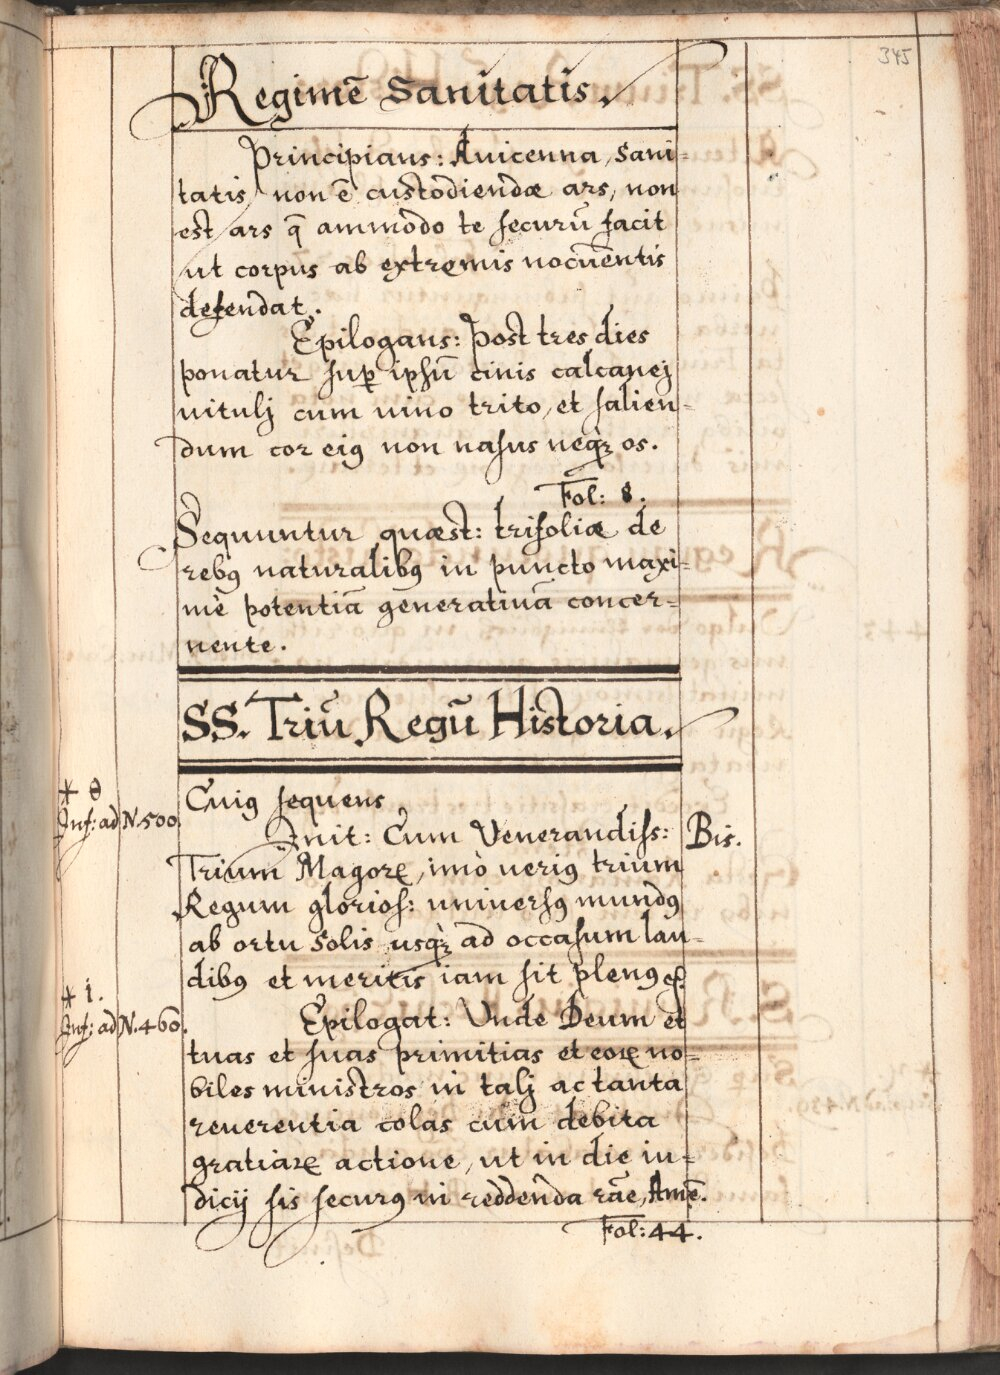 345
Regimē Sanitatis.
Principians: Auicenna, Sani=
tatis non ē custodiendæ ars, non
est ars q̄ ammodo te securū facit
ut corpus ab extremis nocuentis
defendat.
Epilogans: Post tres dies
ponatur sup̱ ipsū cinis calcanej
uitulj cum uino trito, et salien=
dum cor eiꝯ non nasus neqꝫ os.
Fol: 8.
Sequuntur quæst: trifoliæ de
rebꝯ naturalibꝯ in puncto maxi=
mè potentiā generatiuā concer=
nente.
SS. Triū Regū Historia.
Cuiꝯ sequens
Init: Cum Venerandiss:
Bis.
* 0
Inf: ad N. 500.
Trium Magorꝝ, imò ueriꝯ trium
Regum glorios: uniuersꝯ mundꝯ
ab ortu Solis usqꝫ ad occasum lau=
dibꝯ et meritis iam sit plenꝯ
* 1.
Inf: ad N. 460.
Epilogat: Unde Deum et
tuas et suas primitias et eorꝝ no=
biles ministros in talj ac tanta
reuerentia colas cùm debita
gratiarꝝ actione, ut in die iu=
dicij sis securꝯ in reddenda rāe, Amē.
Fol: 44.